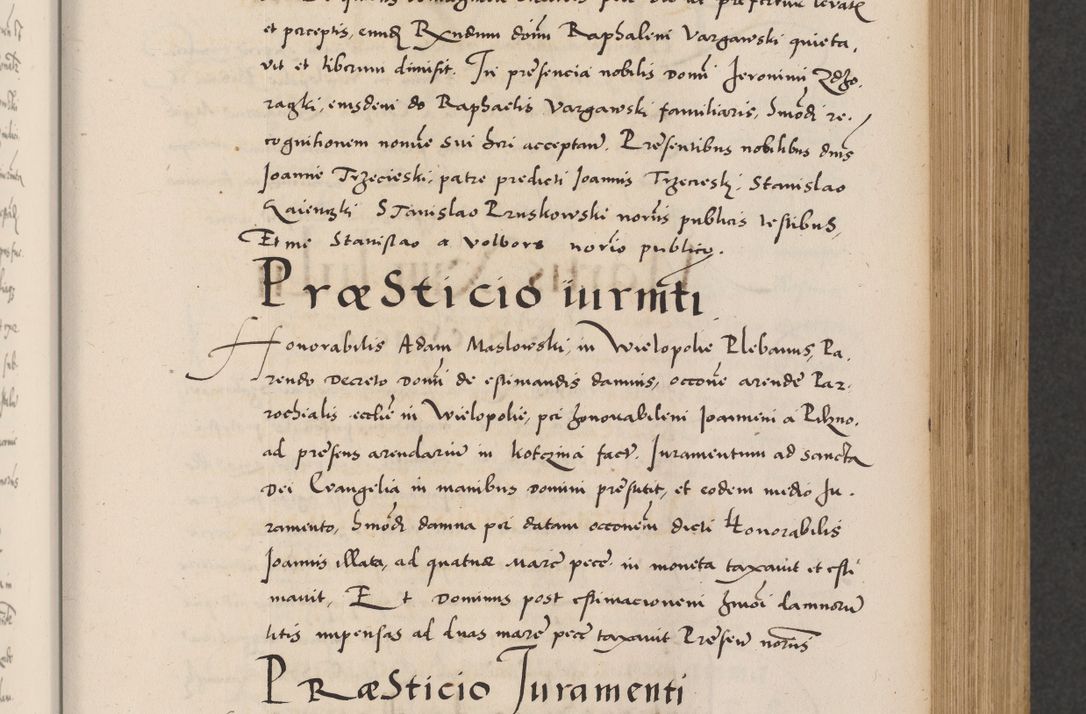 et perceptis, eund Rxndum domn Raphalem Vargawski quieta,
vit et liberum dimisit. In presencia nobilis domi Jeronimi Zdzo,
razki, eiusdem do Raphaelis Vargawski familiaris, hmodi re,
cognitionem nomine sui heri acceptan. Presentibus nobilibus dnis
Joanne Trzecieski, patre predicti Joannis Trzecieski, Stanislao
Stanislao Pruskowski noriis publicis testibus,
Et me Stanislao a Volbors norio publico.
PræSticio iurmti
Honorabilis Adam Maslowski, in Wielopolie Plebanus, Pa,
rendo Decreto Domi de estimandis damnis, occone arende Par,
rochialis ecclie in Wielopolie, per honorabilem Joannem a Pilzno,
ad presens arendariu in kotczina fact. Juramentum ad Sancta
Dei Evangelia in manibus Domini prestitit, et eodem medio Ju,
ramento, hmodi damna per datam occonem dicti Honorabilis
Joannis illata, ad quatuor marc pece in moneta taxavit et esti
mavit, Et Dominus post estimacionem hmoi damnoru
litis impensas ad duas marc pece taxavit Presen noriis
PRæSticio Juramenti